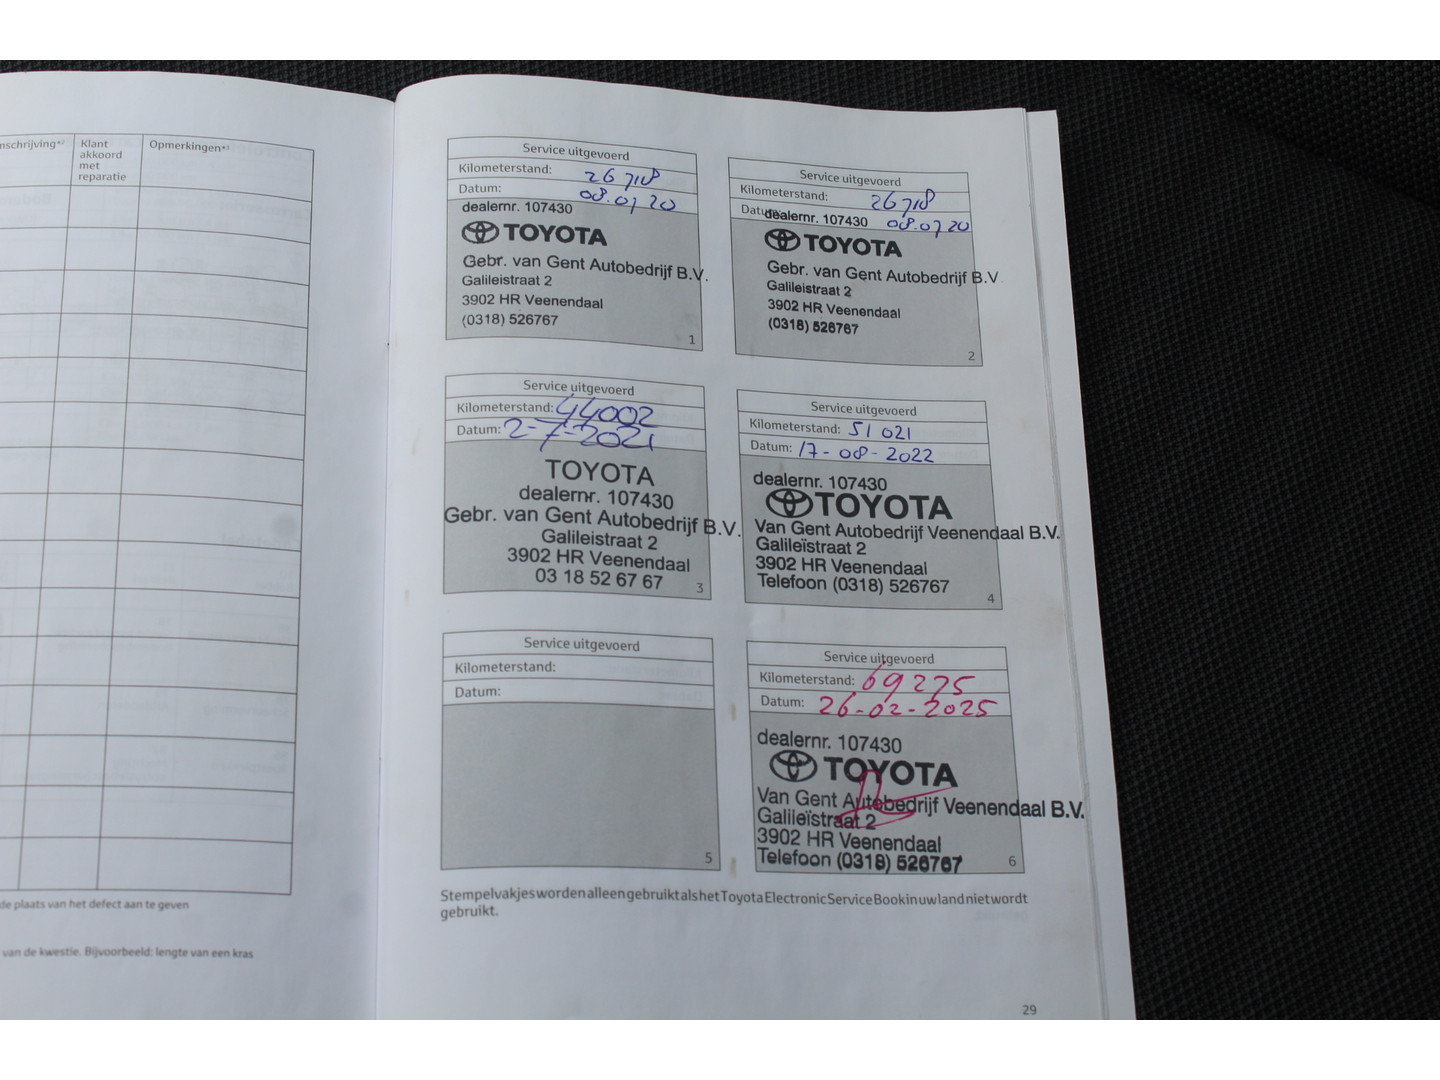 nschrijving*²
Klant
akkoord
met
reparatie
Opmerkingen*³
de plaats van het defect aan te geven
van de kwestie. Bijvoorbeeld: lengte van een kras
Service uitgevoerd
Kilometerstand: 26718
Datum: 08.07 20
dealernr. 107430
TOYOTA
Gebr. van Gent Autobedrijf B.V.
Galileistraat 2
3902 HR Veenendaal
(0318) 526767
1
Service uitgevoerd
Kilometerstand: 26718
Datum: 08.07 20
dealernr. 107430
TOYOTA
Gebr. van Gent Autobedrijf B.V.
Galileistraat 2
3902 HR Veenendaal
(0318) 526767
2
Service uitgevoerd
Kilometerstand: 44002
Datum: 2-7-2021
TOYOTA
dealernr. 107430
Gebr. van Gent Autobedrijf B.V.
Galileistraat 2
3902 HR Veenendaal
03 18 52 67 67
3
Service uitgevoerd
Kilometerstand: 51 021
Datum: 17-08-2022
dealernr. 107430
TOYOTA
Van Gent Autobedrijf Veenendaal B.V.
Galileïstraat 2
3902 HR Veenendaal
Telefoon (0318) 526767
4
Service uitgevoerd
Kilometerstand:
Datum:
5
Service uitgevoerd
Kilometerstand: 69275
Datum: 26-02-2025
dealernr. 107430
TOYOTA
Van Gent Autobedrijf Veenendaal B.V.
Galileïstraat 2
3902 HR Veenendaal
Telefoon (0318) 526767
6
Stempelvakjes worden alleen gebruikt als het Toyota Electronic Service Book in uw land niet wordt
gebruikt.
29